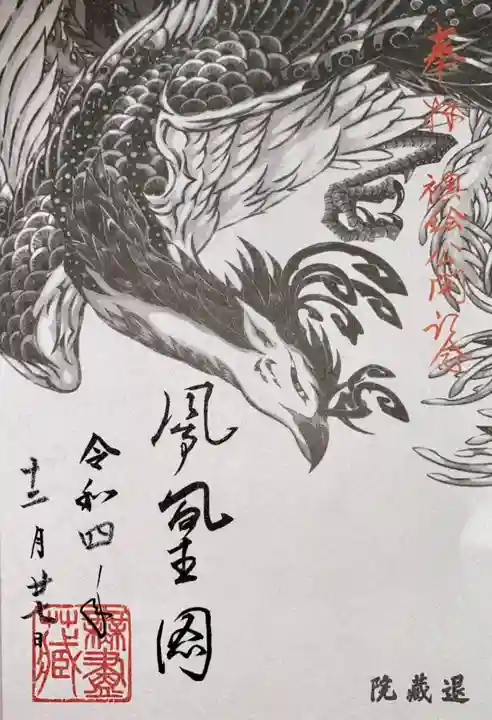 奉拝 襖絵公開記念
鳳凰図
令和四年
十二月廿七日
退蔵院